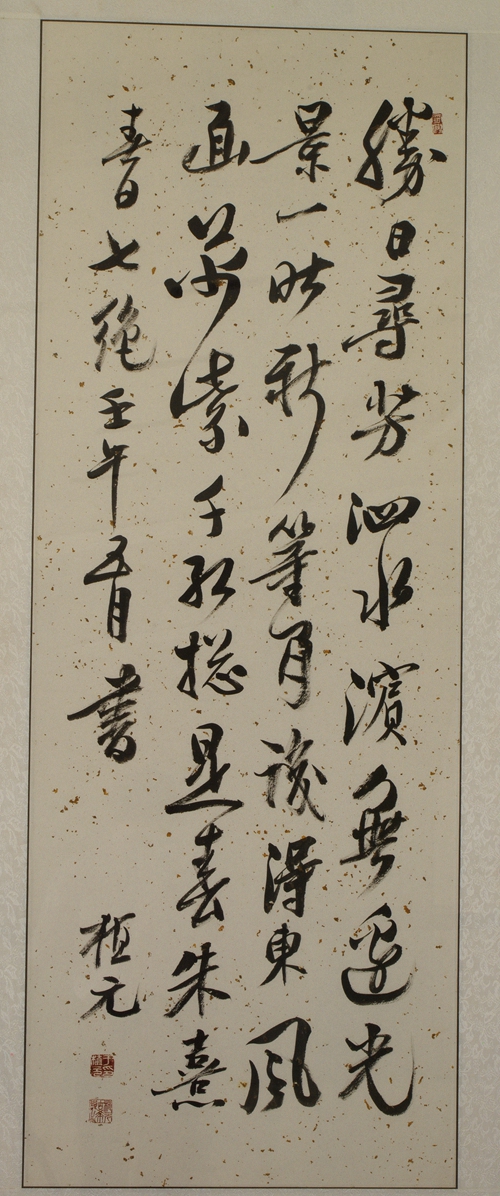 勝日尋芳泗水濱無邊光
景一時新等閒識得東風
面萬紫千紅總是春朱熹
春日七絕壬午五月書
植元